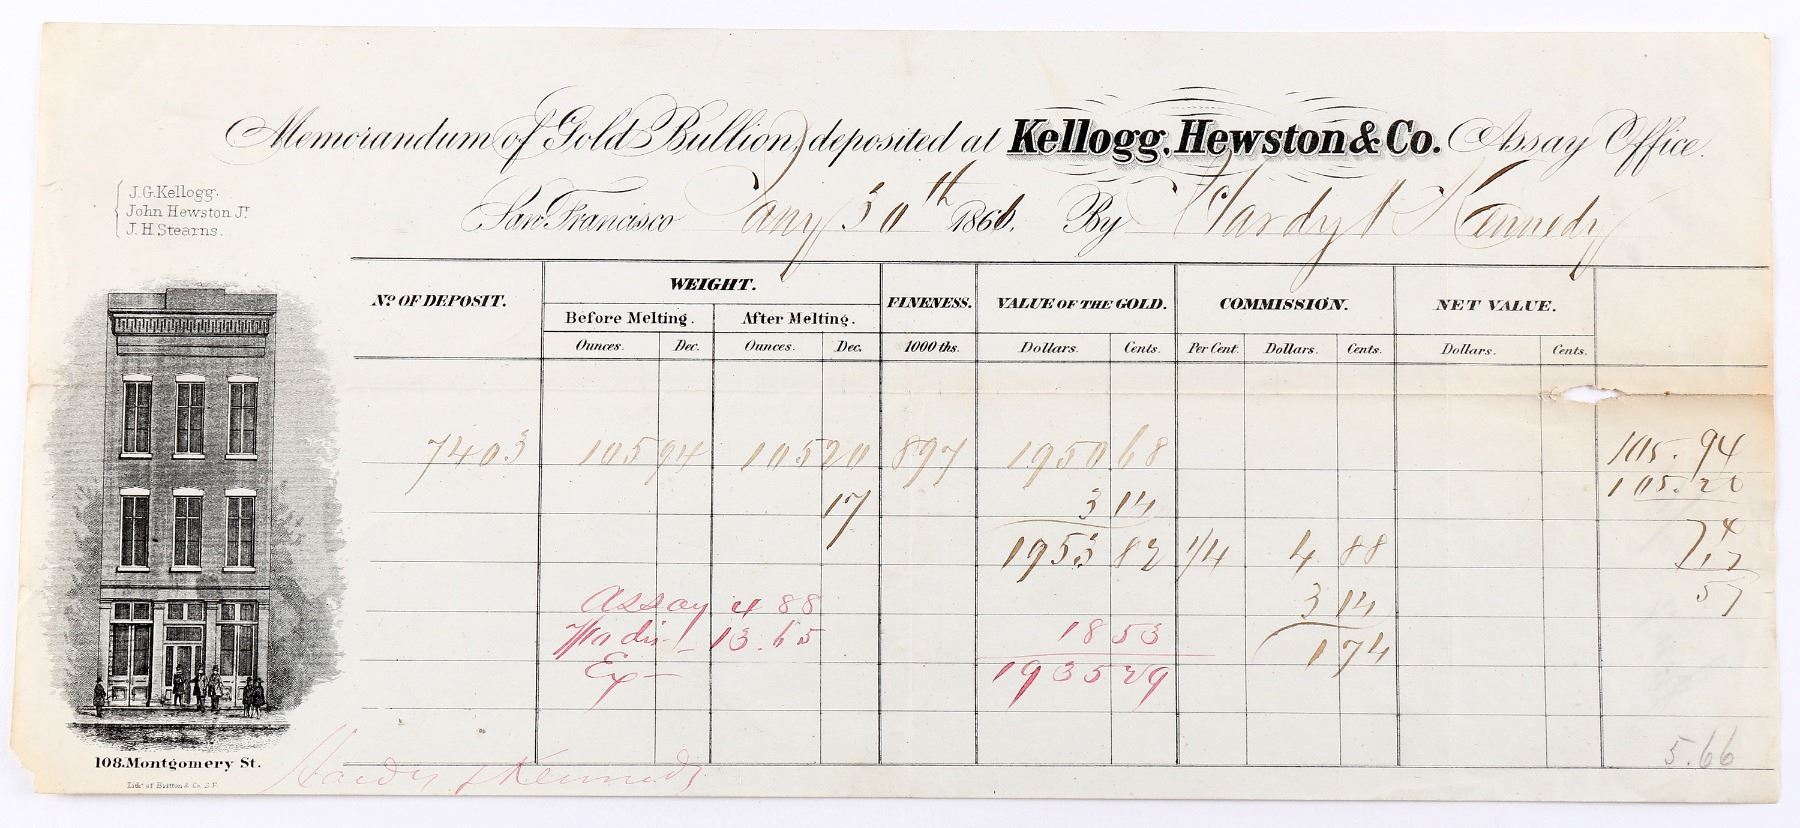 Memorandum of Gold Bullion, deposited at Kellogg, Hewston & Co. Assay Office.
J.G. Kellogg.
John Hewston Jr
J.H. Stearns.
San Francisco Jany 30th 1866. By Hardy & Kennedy
No. OF DEPOSIT. WEIGHT. FINENESS. VALUE OF THE GOLD. COMMISSION. NET VALUE.
Before Melting. After Melting.
Ounces. Dec. Ounces. Dec. 1000 ths. Dollars. Cents. Per Cent. Dollars. Cents. Dollars. Cents.
7403 105 94 105 20 897 1950 68 105.94
17 3 14 105.20
1953 82 1/4 4 88 74
17
Assay 4 88 3 14 57
13.65 18 53 1 74
Ex— 1935 29
5.66
108. Montgomery St.
Hardy & Kennedy
Lith. of Britton & Co. S.F.